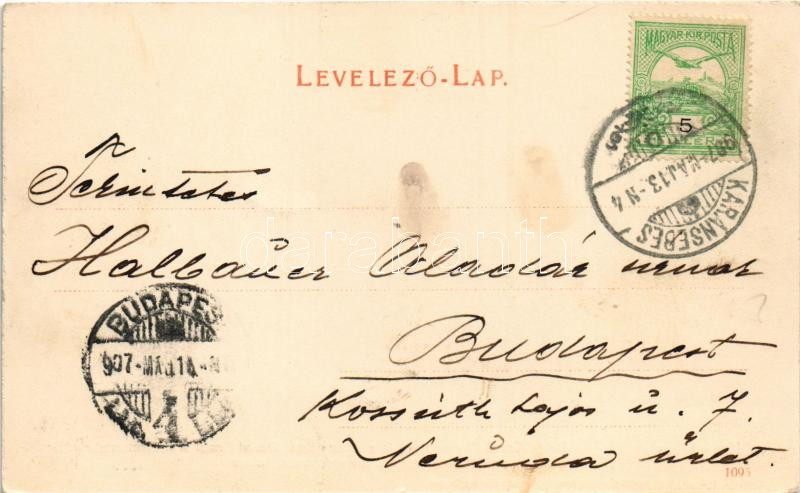 LEVELEZŐ-LAP.
MAGYAR KIR. POSTA
5
907-MÁJ.13.-N 4
KARÁNSEBES
Tekintetes
Halbauer Aladár urnak
Budapest
Kossúth Lajos ú. 7.
Nerúda űzlet.
BUDAPES
907-MÁJ.14
1
1095
darabanth